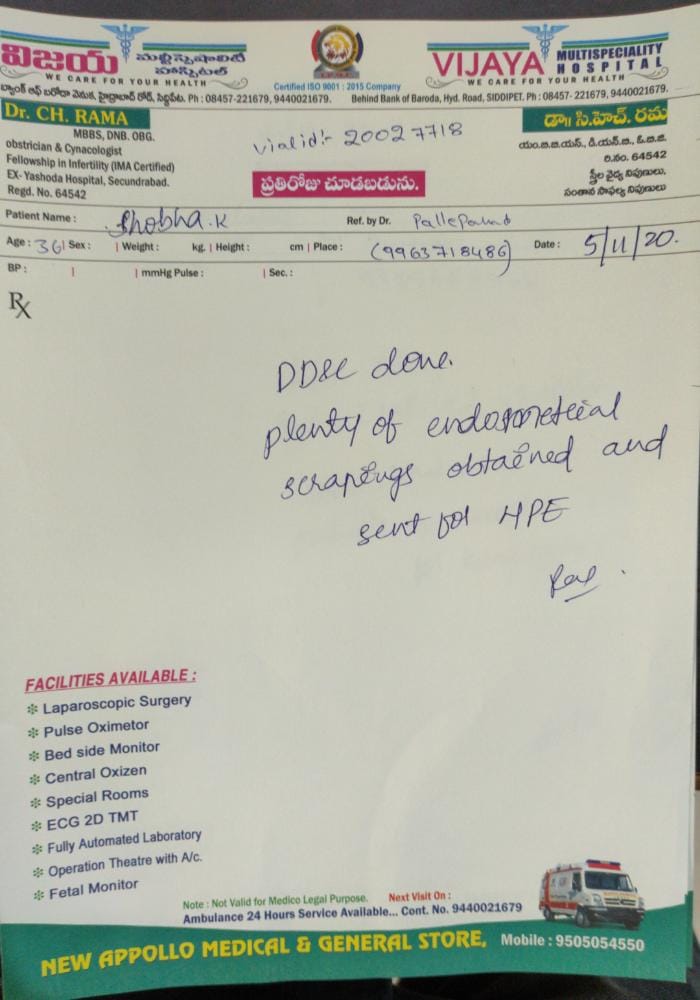 విజయ మల్టీస్పెషాలిటీ హాస్పిటల్
WE CARE FOR YOUR HEALTH
Certified ISO 9001 : 2015 Company
VIJAYA MULTISPECIALITY HOSPITAL
WE CARE FOR YOUR HEALTH
బ్యాంక్ ఆఫ్ బరోడా వెనుక, హైద్రాబాద్ రోడ్, సిద్దిపేట. Ph : 08457-221679, 9440021679.
Behind Bank of Baroda, Hyd. Road, SIDDIPET. Ph : 08457- 221679, 9440021679.
Dr. CH. RAMA
MBBS, DNB. OBG.
obstrician & Cynacologist
Fellowship in Infertility (IMA Certified)
EX- Yashoda Hospital, Secundrabad.
Regd. No. 64542
vialid:- 20027718
ప్రతిరోజు చూడబడును.
డా॥ సి.హెచ్. రమ
ఎం.బి.బి.యస్., డి.యన్.బి., ఓ.బి.జి.
రి.నం. 64542
స్త్రీల వైద్య నిపుణులు,
సంతాన సాఫల్య నిపుణులు
Patient Name : Shobha.K Ref. by Dr.
Age : 36 | Sex : | Weight : kg. | Height : cm | Place : (9963718486) Date : 5/11/20.
BP : | | mmHg Pulse : | Sec. :
Rx
DD&C done.
plenty of endometrial
scrapings obtained and
sent for HPE
FACILITIES AVAILABLE :
❇ Laparoscopic Surgery
❇ Pulse Oximetor
❇ Bed side Monitor
❇ Central Oxizen
❇ Special Rooms
❇ ECG 2D TMT
❇ Fully Automated Laboratory
❇ Operation Theatre with A/c.
❇ Fetal Monitor
Note : Not Valid for Medico Legal Purpose. Next Visit On :
Ambulance 24 Hours Service Available... Cont. No. 9440021679
NEW APPOLLO MEDICAL & GENERAL STORE, Mobile : 9505054550